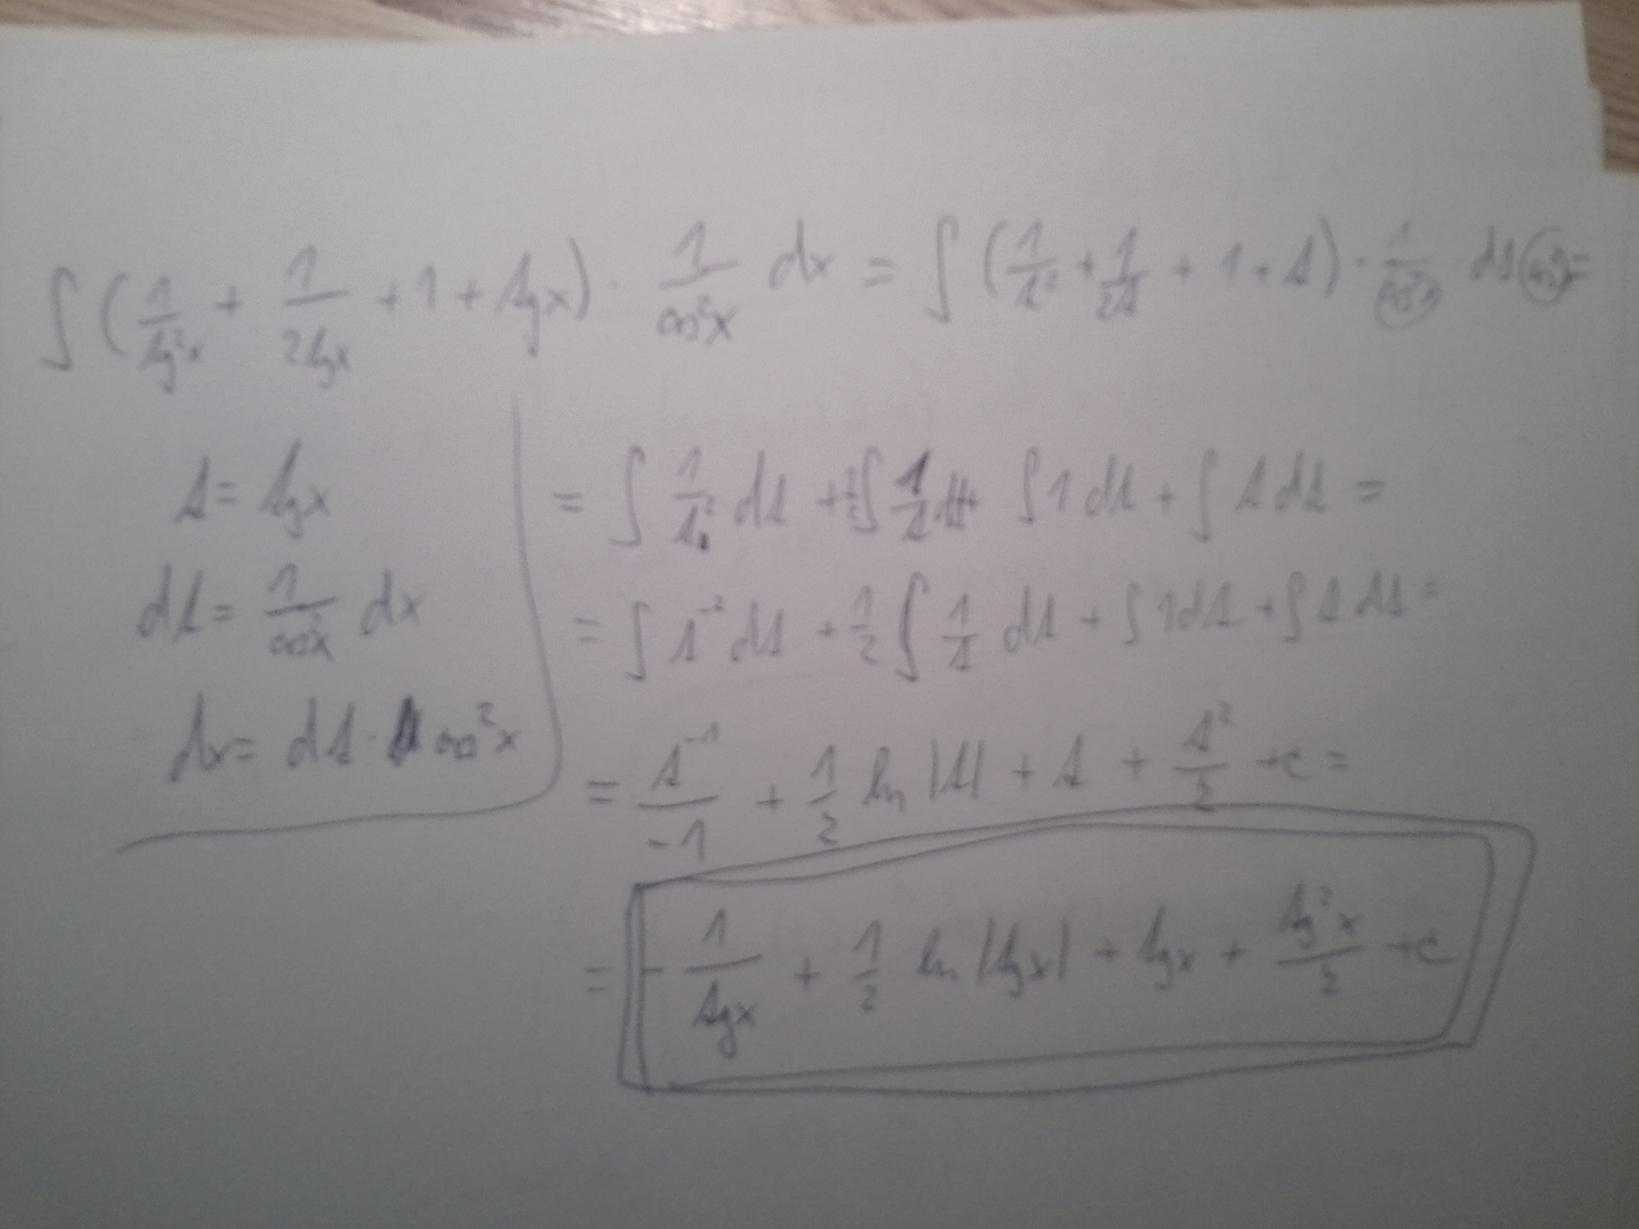 ∫ (1/tg²x + 1/2tgx + 1 + tgx) · 1/cos²x dx = ∫ (1/t² + 1/2t + 1 + t) · 1/cos²x · dt cos²x =
t = tgx
dt = 1/cos²x dx
dx = dt · cos²x
= ∫ 1/t² dt + 1/2 ∫ 1/t dt + ∫ 1 dt + ∫ t dt =
= ∫ t⁻² dt + 1/2 ∫ 1/t dt + ∫ 1 dt + ∫ t dt =
= t⁻¹/-1 + 1/2 ln |t| + t + t²/2 + c =
= - 1/tgx + 1/2 ln |tgx| + tgx + tg²x/2 + c